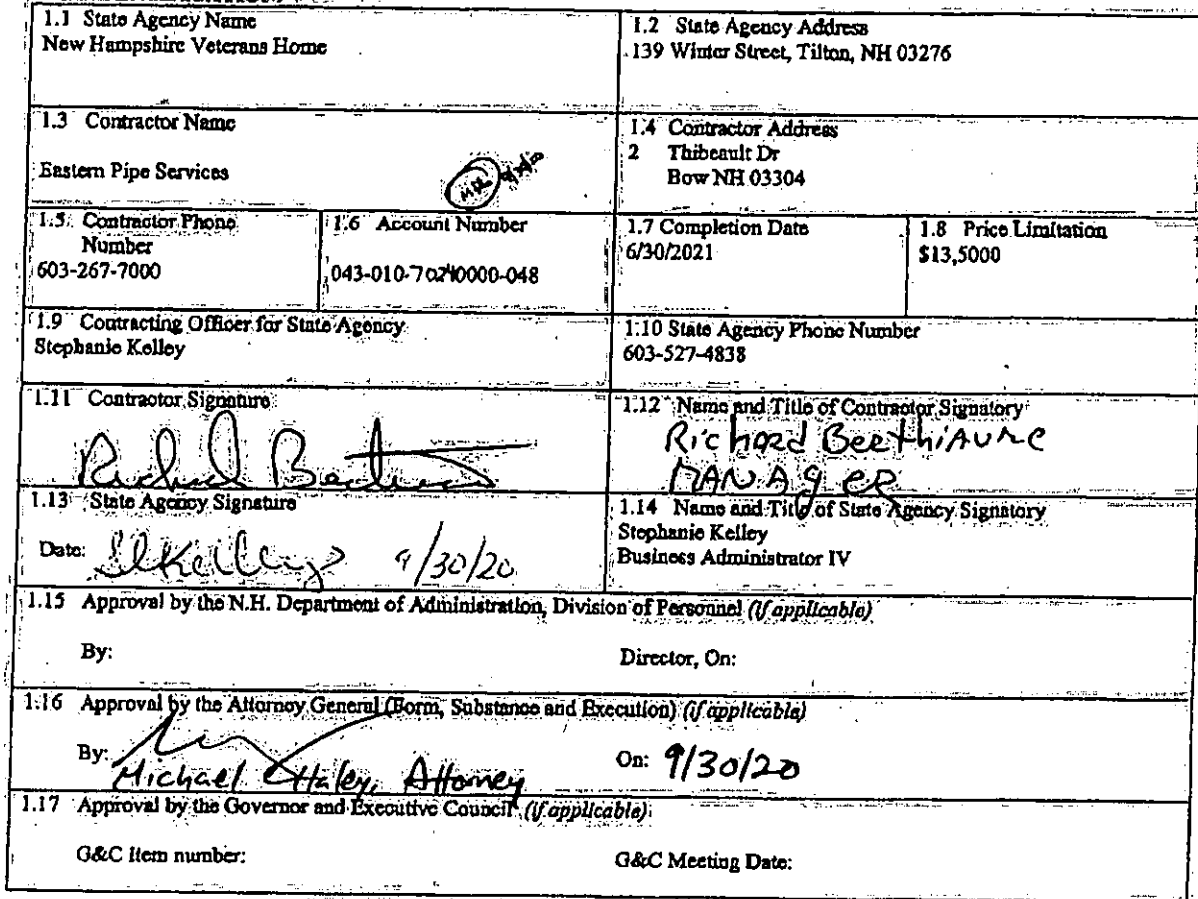 1.1 State Agency Name
New Hampshire Veterans Home
1.2 State Agency Address
139 Winter Street, Tilton, NH 03276
1.3 Contractor Name
Eastern Pipe Services
1.4 Contractor Address
2 Thibeault Dr
Bow NH 03304
1.5 Contractor Phone
Number
603-267-7000
1.6 Account Number
043-010-70240000-048
1.7 Completion Date
6/30/2021
1.8 Price Limitation
$13,5000
1.9 Contracting Officer for State Agency
Stephanie Kelley
1.10 State Agency Phone Number
603-527-4838
1.11 Contractor Signature
1.12 Name and Title of Contractor Signatory
Richard Beethiaume
MANAgeR
1.13 State Agency Signature
Date: SKelley 9/30/20
1.14 Name and Title of State Agency Signatory
Stephanie Kelley
Business Administrator IV
1.15 Approval by the N.H. Department of Administration, Division of Personnel (if applicable)
By:
Director, On:
1.16 Approval by the Attorney General (Form, Substance and Execution) (if applicable)
By:
On: 9/30/20
Michael Haley, Attorney
1.17 Approval by the Governor and Executive Council (if applicable)
G&C Item number:
G&C Meeting Date: